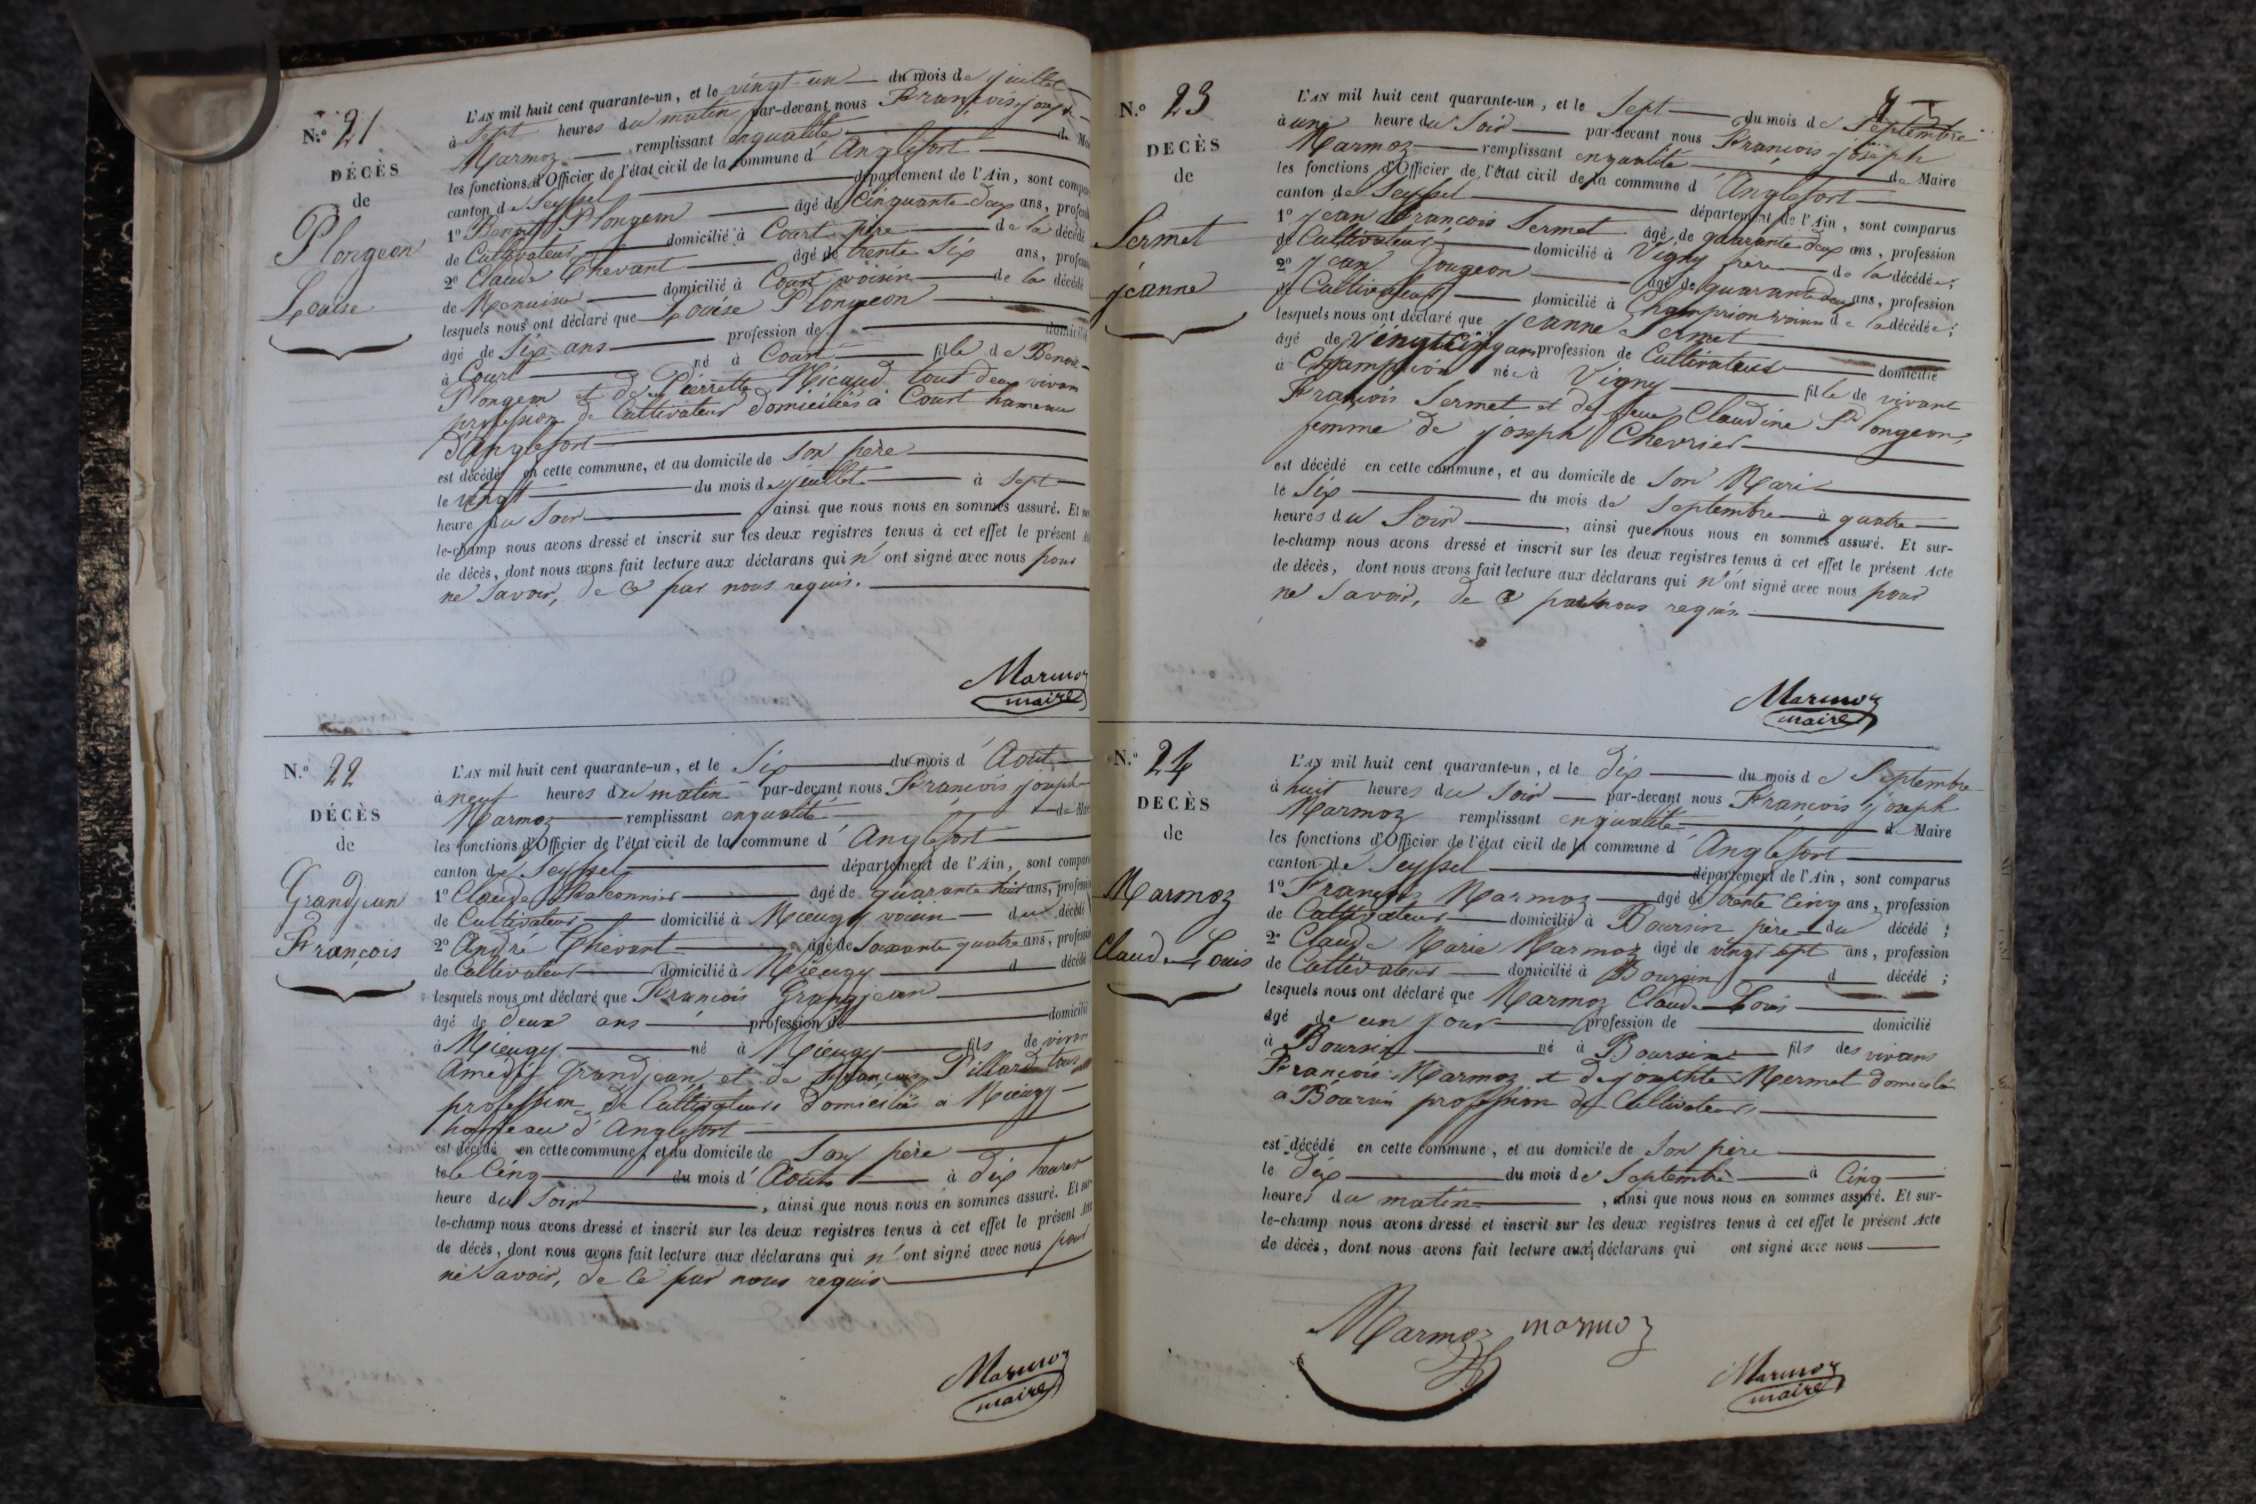 N.º 21
DÉCÈS
de
Plongeon
Louise
L'AN mil huit cent quarante-un, et le vingt-un du mois de juillet
à sept heures du matin par-devant nous François joseph
Marmoz remplissant en qualité de
les fonctions d'Officier de l'état civil de la commune d'Anglefort
canton de Seyssel département de l'Ain, sont
1º Benoit Plongeon âgé de cinquante deux ans,
de Cultivateur domicilié à Court père de la décédé
2º Claude Chevant âgé de trente six ans,
de Menuisier domicilié à Court voisin de la décédé
lesquels nous ont déclaré que Louise Plongeon
âgé de six ans profession de
à Court né à Court fille de Benoit
Plongeon et de Pierrette Micaud tous deux vivans
profession de Cultivateurs domiciliés à Court hameau
d'Anglefort
est décédé en cette commune, et au domicile de son père
le vingt du mois de juillet à sept
heure du soir ainsi que nous nous en sommes assuré. Et
le-champ nous avons dressé et inscrit sur les deux registres tenus à cet effet le présent
de décès, dont nous avons fait lecture aux déclarans qui n'ont signé avec nous pour
ne savoir, de ce par nous requis.
Marmoz
maire
N.º 22
DÉCÈS
de
Grandjean
François
L'AN mil huit cent quarante-un, et le six du mois d'Août
à neuf heures du matin par-devant nous François joseph
Marmoz remplissant en qualité de
les fonctions d'Officier de l'état civil de la commune d'Anglefort
canton de Seyssel département de l'Ain, sont
1º Claude âgé de quarante huit ans,
de Cultivateur domicilié à Mieugy voisin du décédé
2º André Chevant âgé de soixante quatre ans,
de Cultivateur domicilié à Mieugy d décédé
lesquels nous ont déclaré que François Grandjean
âgé de deux ans profession de domicilié
à Mieugy né à Mieugy fils de
Amedée Grandjean et de Françoise Pillard tous
profession de Cultivateurs domiciliés à Mieugy
hameau d'Anglefort
est décédé en cette commune, et au domicile de son père
le cinq du mois d'Août à dix heures
heure du soir, ainsi que nous nous en sommes assuré. Et
le-champ nous avons dressé et inscrit sur les deux registres tenus à cet effet le présent
de décès, dont nous avons fait lecture aux déclarans qui n'ont signé avec nous pour
ne savoir, de ce par nous requis
Marmoz
maire
N.º 23
DECÈS
de
Sermet
jeanne
L'AN mil huit cent quarante-un, et le sept du mois de Septembre
à une heure du soir par-devant nous François joseph
Marmoz remplissant en qualité de Maire
les fonctions d'Officier de l'état civil de la commune d'Anglefort
canton de Seyssel département de l'Ain, sont comparus
1º jean François Sermet âgé de quarante deux ans, profession
de Cultivateur domicilié à Vigny frère de la décédée;
2º jean Jougeon âgé de quarante deux ans, profession
de Cultivateur domicilié à Champrion voisin de la décédée;
lesquels nous ont déclaré que jeanne Sermet
âgé de vingt cinq ans profession de Cultivateur domicilié
à Champrion née à Vigny fille de vivant
François Sermet et de feue Claudine Plongeon,
femme de joseph Chevrier
est décédé en cette commune, et au domicile de son Mari
le six du mois de Septembre à quatre
heures du soir, ainsi que nous nous en sommes assuré. Et sur-
le-champ nous avons dressé et inscrit sur les deux registres tenus à cet effet le présent Acte
de décès, dont nous avons fait lecture aux déclarans qui n'ont signé avec nous pour
ne savoir, de ce par nous requis
Marmoz
maire
N.º 24
DECÈS
de
Marmoz
Claude Louis
L'AN mil huit cent quarante-un, et le dix du mois de Septembre
à huit heures du soir par-devant nous François joseph
Marmoz remplissant en qualité d Maire
les fonctions d'Officier de l'état civil de la commune d'Anglefort
canton de Seyssel département de l'Ain, sont comparus
1º François Marmoz âgé de trente cinq ans, profession
de Cultivateur domicilié à Boursin père du décédé;
2º Claude Marie Marmoz âgé de vingt sept ans, profession
de Cultivateur domicilié à Boursin d décédé;
lesquels nous ont déclaré que Marmoz Claude Louis
âgé de un jour profession de domicilié
à Boursin né à Boursin fils des vivans
François Marmoz et de josephte Mermet domiciliés
à Boursin profession de Cultivateurs
est décédé en cette commune, et au domicile de son père
le dix du mois de Septembre à cinq
heures du matin, ainsi que nous nous en sommes assuré. Et sur-
le-champ nous avons dressé et inscrit sur les deux registres tenus à cet effet le présent Acte
de décès, dont nous avons fait lecture aux déclarans qui ont signé avec nous
Marmoz marmoz
Marmoz
maire